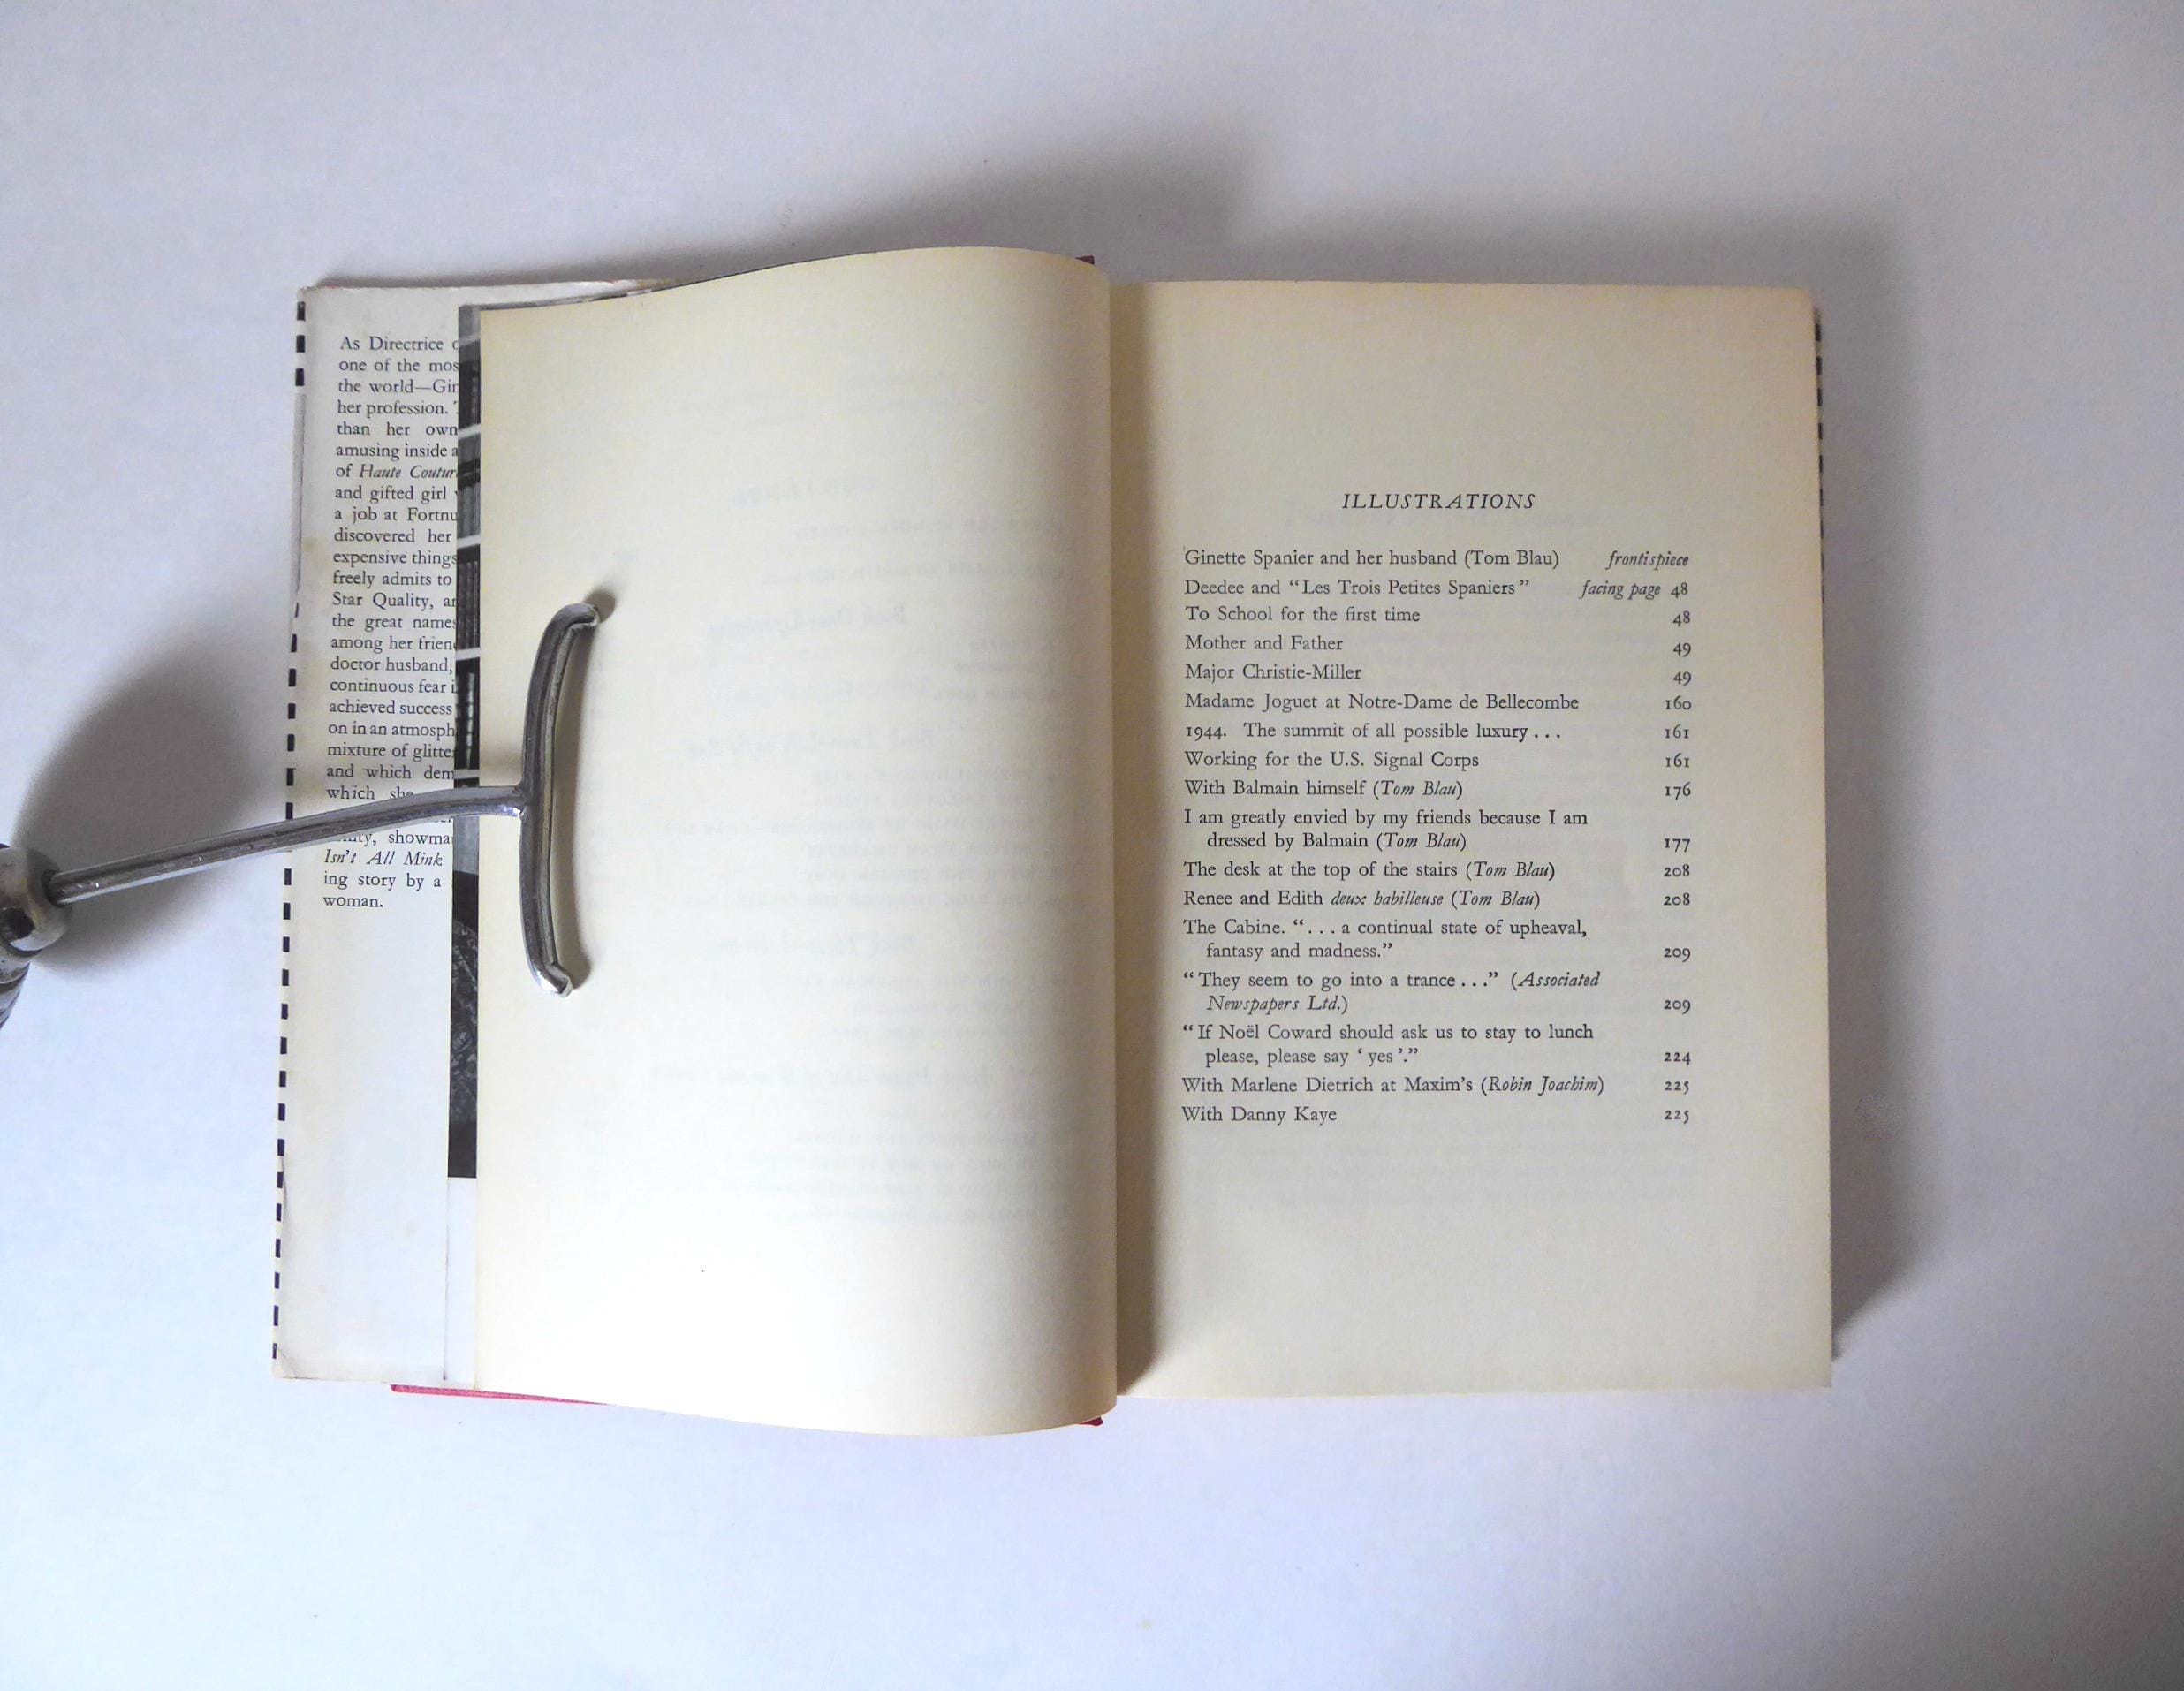 As Directrice
one of the
the world—
her profession.
than her own
amusing inside
of Haute
and gifted girl
a job at
discovered her
expensive things
freely admits to
Star Quality,
the great names
among her
doctor husband,
continuous fear
achieved success
on in an
mixture of
and which
which she
showma
Isn't All Mink
ing story by a
woman.
ILLUSTRATIONS
Ginette Spanier and her husband (Tom Blau) frontispiece
Deedee and “Les Trois Petites Spaniers” facing page 48
To School for the first time 48
Mother and Father 49
Major Christie-Miller 49
Madame Joguet at Notre-Dame de Bellecombe 160
1944. The summit of all possible luxury . . . 161
Working for the U.S. Signal Corps 161
With Balmain himself (Tom Blau) 176
I am greatly envied by my friends because I am
dressed by Balmain (Tom Blau) 177
The desk at the top of the stairs (Tom Blau) 208
Renee and Edith deux habilleuse (Tom Blau) 208
The Cabine. “. . . a continual state of upheaval,
fantasy and madness.” 209
“They seem to go into a trance . . .” (Associated
Newspapers Ltd.) 209
“If Noël Coward should ask us to stay to lunch
please, please say ‘yes’.” 224
With Marlene Dietrich at Maxim's (Robin Joachim) 225
With Danny Kaye 225